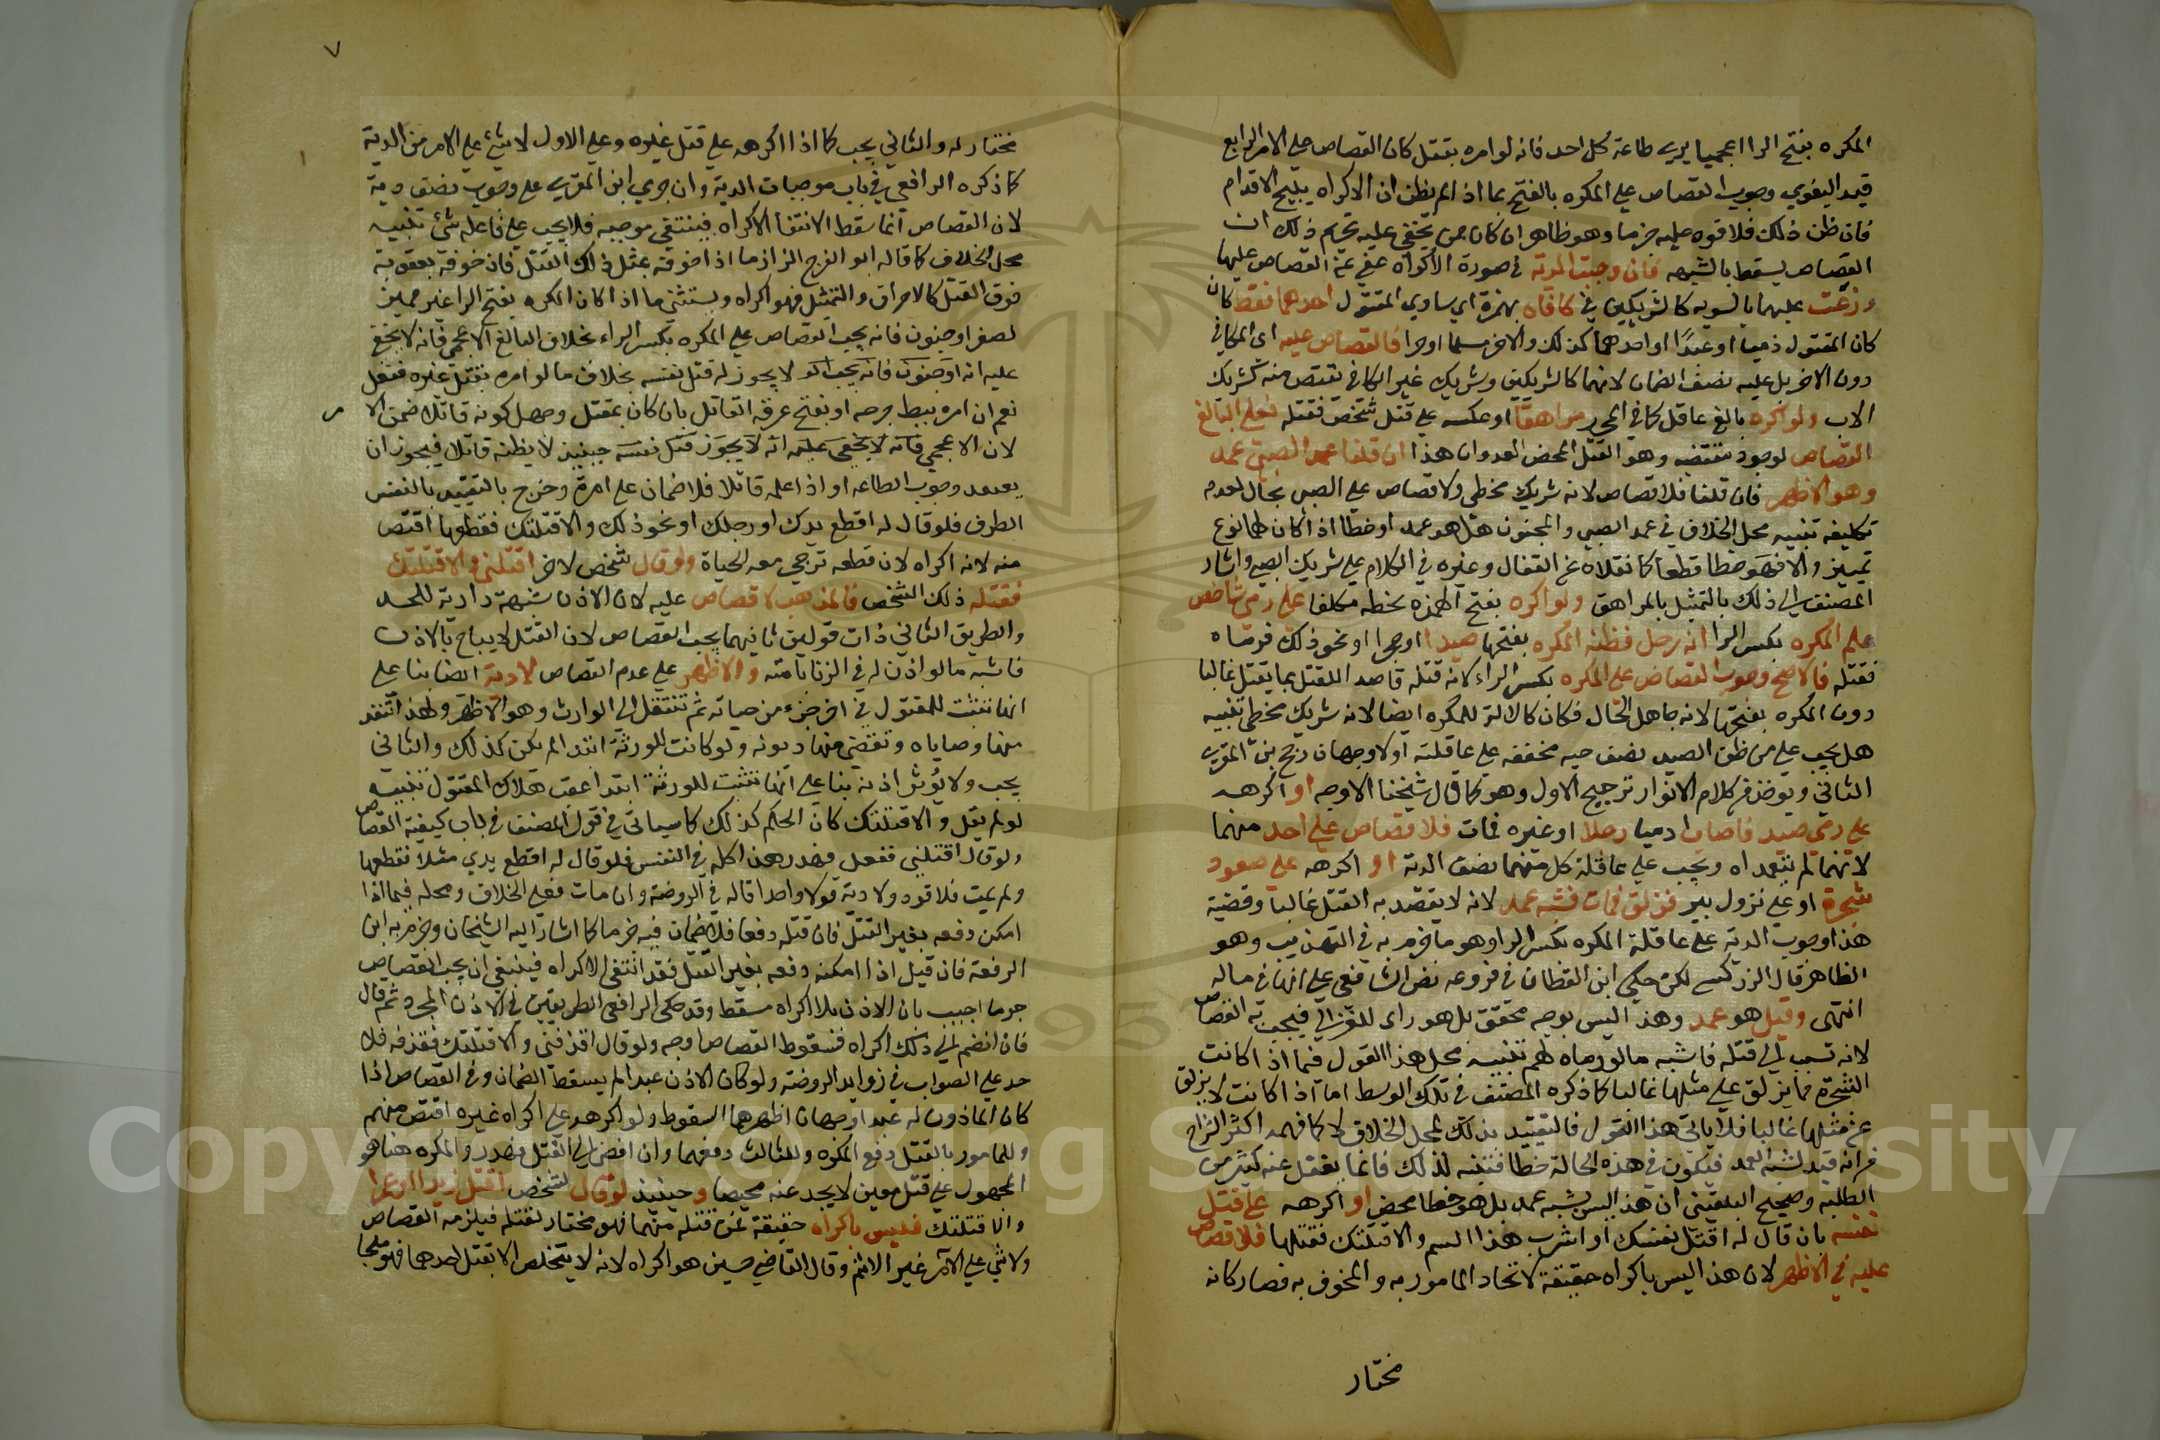 المكره بفتح الرا اعجميا يرى طاعة كل احد فانه لو امره بقتل كان القصاص على الامر الرابع
قيد البغوي وجوب القصاص على المكره بالفتح بما اذا لم يظن ان الاكراه يبيح الاقدام
فان ظن ذلك فلا قود عليه جزما وهو ظاهر ان كان ممن يخفى عليه تحريم ذلك اذ
القصاص يسقط بالشبهه فان وجبت الدية في صورة الاكراه عفي عن القصاص عليها
وزعت عليهما بالسويه كالشريكين في كافاه بهمزة اي ساوي المقتول احدهما فقط كان
كان المقتول ذميا او عبدا او احدهما كذلك والاخر مسلما او حرا فالقصاص عليه اي المكافي
دون الاخر بل عليه نصف الضمان لانهما كالشريكين وشريك غير المكافي يقتص منه كشريك
الاب ولو اكره بالغ عاقل كما في المحرر مراهقا او عكسه على قتل شخص فقتله فعلى البالغ
القصاص لوجود مقتضيه وهو القتل المحض العدوان هذا ان قلنا عمد الصبي عمد
وهو الاظهر فان قلنا فلا قصاص لانه شريك مخطي ولا قصاص على الصبي بحال لعدم
تكليفه تنبيه محل الخلاف في عمد الصبي والمجنون هل هو عمد او خطا اذا كان لهما نوع
تمييز والا فهو خطا قطعا كما نقلاه عن القفال وغيره في الكلام على شريك الصبي واشار
المصنف الى ذلك بالتمثيل بالمراهق ولو اكره بفتح الهمزه بخطه مكلفا على رمي شاخص
علم المكره بكسر الرا انه رجل فظنه المكره بفتحها صيدا او حجرا او نحو ذلك فرماه
فقتله فالاصح وجوب القصاص على المكره بكسر الراء لانه قتله قاصدا للقتل بما يقتل غالبا
دون المكره بفتحها لانه جاهل الحال فكان كالالة للمكره ايضا لانه شريك مخطي تنبيه
هل يجب على من ظن الصيد نصف ديه مخففه على عاقلته اولا وجهان رجح بن المقري
الثاني ويوخذ من كلام الانوار ترجيح الاول وهو كما قال شيخنا الاوجه او اكره
على رمي صيد فاصاب ادميا رجلا او غيره فمات فلا قصاص على احد منهما
لانهما لم يتعمداه ويجب على عاقلة كل منهما نصف الدية او اكرهه على صعود
شجرة او على نزول بير فزلق فمات فشبه عمد لانه لا يقصد به القتل غالبا وقضية
هذا وجوب الدية على عاقلة المكره بكسر الرا وهو ما جزم به في التهذيب وهو
الظاهر قال الزركشي لكن حكى ابن القطان في فروعه نص الشافعي على انها في ماله
انتهى وقيل هو عمد وهذا ليس بوجه محقق بل هو راي للغزالي فيجب به القصاص
لانه تسبب الى قتله فاشبه ما لو رماه بسهم تنبيه محل هذا القول فيما اذا كانت
الشجرة مما يزلق على مثلها غالبا كما ذكره المصنف في تلك الوسط اما اذا كانت لا يزلق
عن مثلها غالبا فلا ياتي هذا القول فالتقييد بذلك لمحل الخلاف لا كما فهمه اكثر الشراح
من انه قيد لشبه العمد فتكون في هذه الحالة خطا فتنبه لذلك فانما يغفل عنه كثير من
الطلبه وصحح البلقيني ان هذا ليس بشبه عمد بل هو خطا محض او اكرهه على قتل
نفسه بان قال له اقتل نفسك او اشرب هذا السم والا قتلتك فقتلها فلا قصاص
عليه في الاظهر لان هذا ليس باكراه حقيقة لاتحاد المامور به والمخوف به فصار كانه
مختار
٧
مختار له والثاني يجب كما اذا اكرهه على قتل غيره وعلى الاول لا شئ على الامر من الدية
كما ذكره الرافعي في باب موجبات الدية وان جرى ابن المقري على وجوب نصف دية
لان القصاص انما سقط الانتفا الاكراه فينتفي موجبه فلا يجب على فاعله شئ تنبيه
محل الخلاف كما قاله ابو الفرج الزاز ما اذا خوفه بمثل ذلك القتل فان خوفه بعقوبة
فوق القتل كالاحراق والتمثيل فهو اكراه ويستثنى ما اذا كان المكره بفتح الرا غير مميز
لصغر او جنون فانه يجب القصاص على المكره بكسر الراء بخلاف البالغ الاعجمي فانه لا يخفى
عليه انه او جنون فانه يجب الو لا يجوز له قتل نفسه بخلاف ما لو امره بقتل غيره فقتل
نعم ان امره ببط جرحه او بفتح عرقه القاتل بان كان بمقتل وجهل كونه قاتلا ضمن الا م
لان الاعجمي فانه لا يخفى عليه انه لا يجوز قتل نفسه حينيذ لا يظنه قاتلا فيجوز ان
يعتقد وجوب الطاعه او اذا علمه قاتلا فلا ضمان على امرة وخرج بالتقييد بالنفس
الطرف فلو قال له اقطع يدك او رجلك او نحو ذلك والا قتلتك فقطعها اقتص
منه لانه اكراه لان قطعه ترجى معه الحياة ولو قال شخص لاخر اقتلني والا قتلتك
فقتله ذلك الشخص فالمذهب لا قصاص عليه لان الاذن شبهة دارية للحد
والطريق الثاني ذات قولين ثانيهما يجب القصاص لان القتل لا يباح بالاذن
فاشبه ما لو اذن له في الزنا بامته والاظهر على عدم القصاص لا دية ايضا بنا على
انها تثبت للمقتول في اخر جزء من حياته ثم تنتقل الى الوارث وهو الاظهر ولهذا تنفذ
منها وصاياه وتقضى منها ديونه ولو كانت للورثة ابتدا لم يكن كذلك والثاني
يجب ولا يؤثر اذنه بنا على انها تثبت للورثة ابتدا عقب هلاك المقتول تنبيه
لو لم يقل والا قتلتك كان الحكم كذلك كما سياتي في قول المصنف في باب كيفية القصاص
ولو قال اقتلني ففعل فهدر هذا كله في النفس فلو قال له اقطع يدي مثلا فقطعها
ولم يمت فلا قود ولا دية قولا واحدا قاله في الروضه وان مات فعلى الخلاف ومحله فيما اذا
امكن دفعه بغير القتل فان قتله دفعا فلا ضمان فيه جزما كما اشار اليه الشيخان وجزم به ابن
الرفعة فان قيل اذا امكنه دفعه بغير القتل فقد انتفى الاكراه فينبغي ان يجب القصاص
جزما اجيب بان الاذن بلا اكراه مسقط وقد حكى الرافعي الطريقين في الاذن المجرد ثم قال
فان انضم الى ذلك اكراه فسقوط القصاص اوجه ولو قال اقذفني والا قتلتك فقذفه فلا
حد على الصواب في زوايد الروضة ولو كان الاذن عبدا لم يسقط الضمان وفي القصاص اذا
كان الماذون له عبدا وجهان اظهرهما السقوط ولو اكرهه على اكراه غيره اقتص منهم
وللمامور بالقتل دفع المكره وللثالث دفعهما وان افضى الى القتل فهدر والمكره هنا هو
المحمول على قتل معين لا يجد عنه محيصا وحينيذ لو قال لشخص اقتل زيدا او عمرا
والا قتلتك فليس باكراه حقيقة فمن قتله منهما فهو مختار لقتله فيلزمه القصاص
ولا شي على الامر غير الاثم وقال القاضي حسين هو اكراه لانه لا يتخلص الا بقتل احدهما فهو ملجا